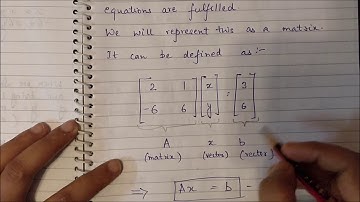 equations are fulfilled
We will represent this as a matrix.
It can be defined as :-
[2 1; -6 6] [x; y] = [3; 6]
A x b
(matrix) (vector) (vector)
⇒ Ax = b -